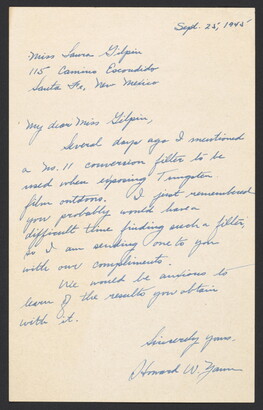 Sept. 25, 1945
Miss Laura Gilpin
115 Camino Escondido
Santa Fe, New Mexico
My dear Miss Gilpin,
Several days ago I mentioned
a No. 11 conversion filter to be
used when exposing Tungsten
film outdoors. I just remembered
you probably would have a
difficult time finding such a filter,
so I am sending one to you
with our compliments.
We would be anxious to
learn of the results you obtain
with it.
Sincerely yours,
Howard W.